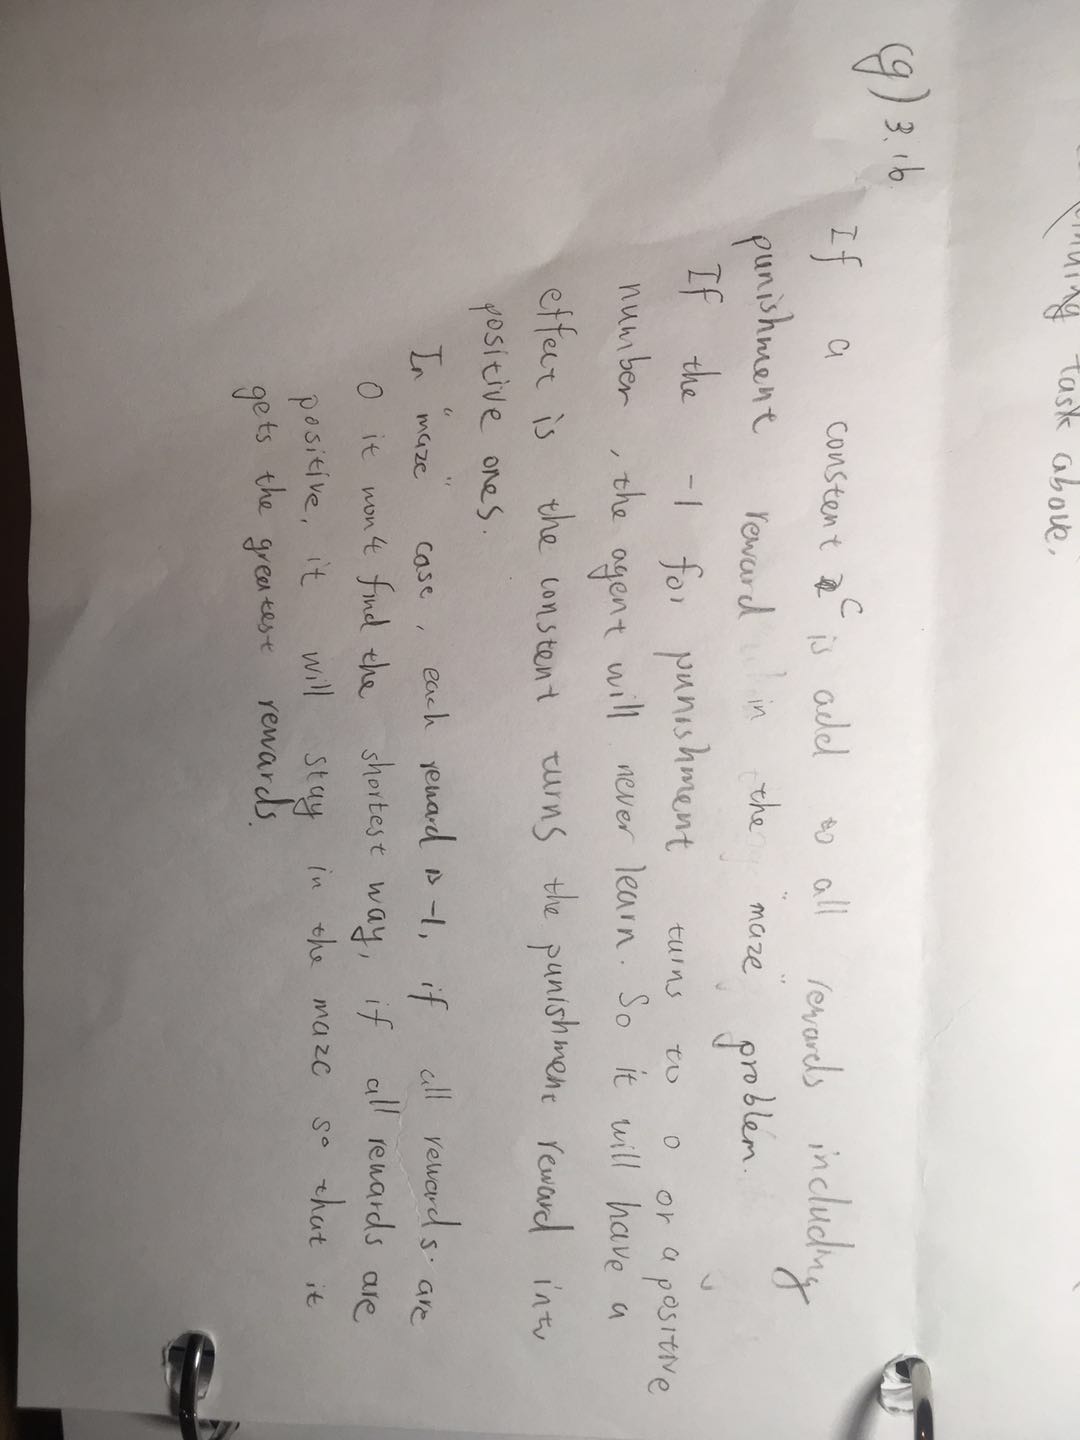 task above.
(g) 3.16
If a constent C is add to all rewards including
punishment reward in the "maze" problem.
If the -1 for punishment turns to 0 or a positive
number, the agent will never learn. So it will have a
effect is the constent turns the punishment reward into
positive ones.
In "maze" case, each reward is -1, if all rewards are
0 it won't find the shortest way, if all rewards are
positive, it will stay in the maze so that it
gets the greatest rewards.